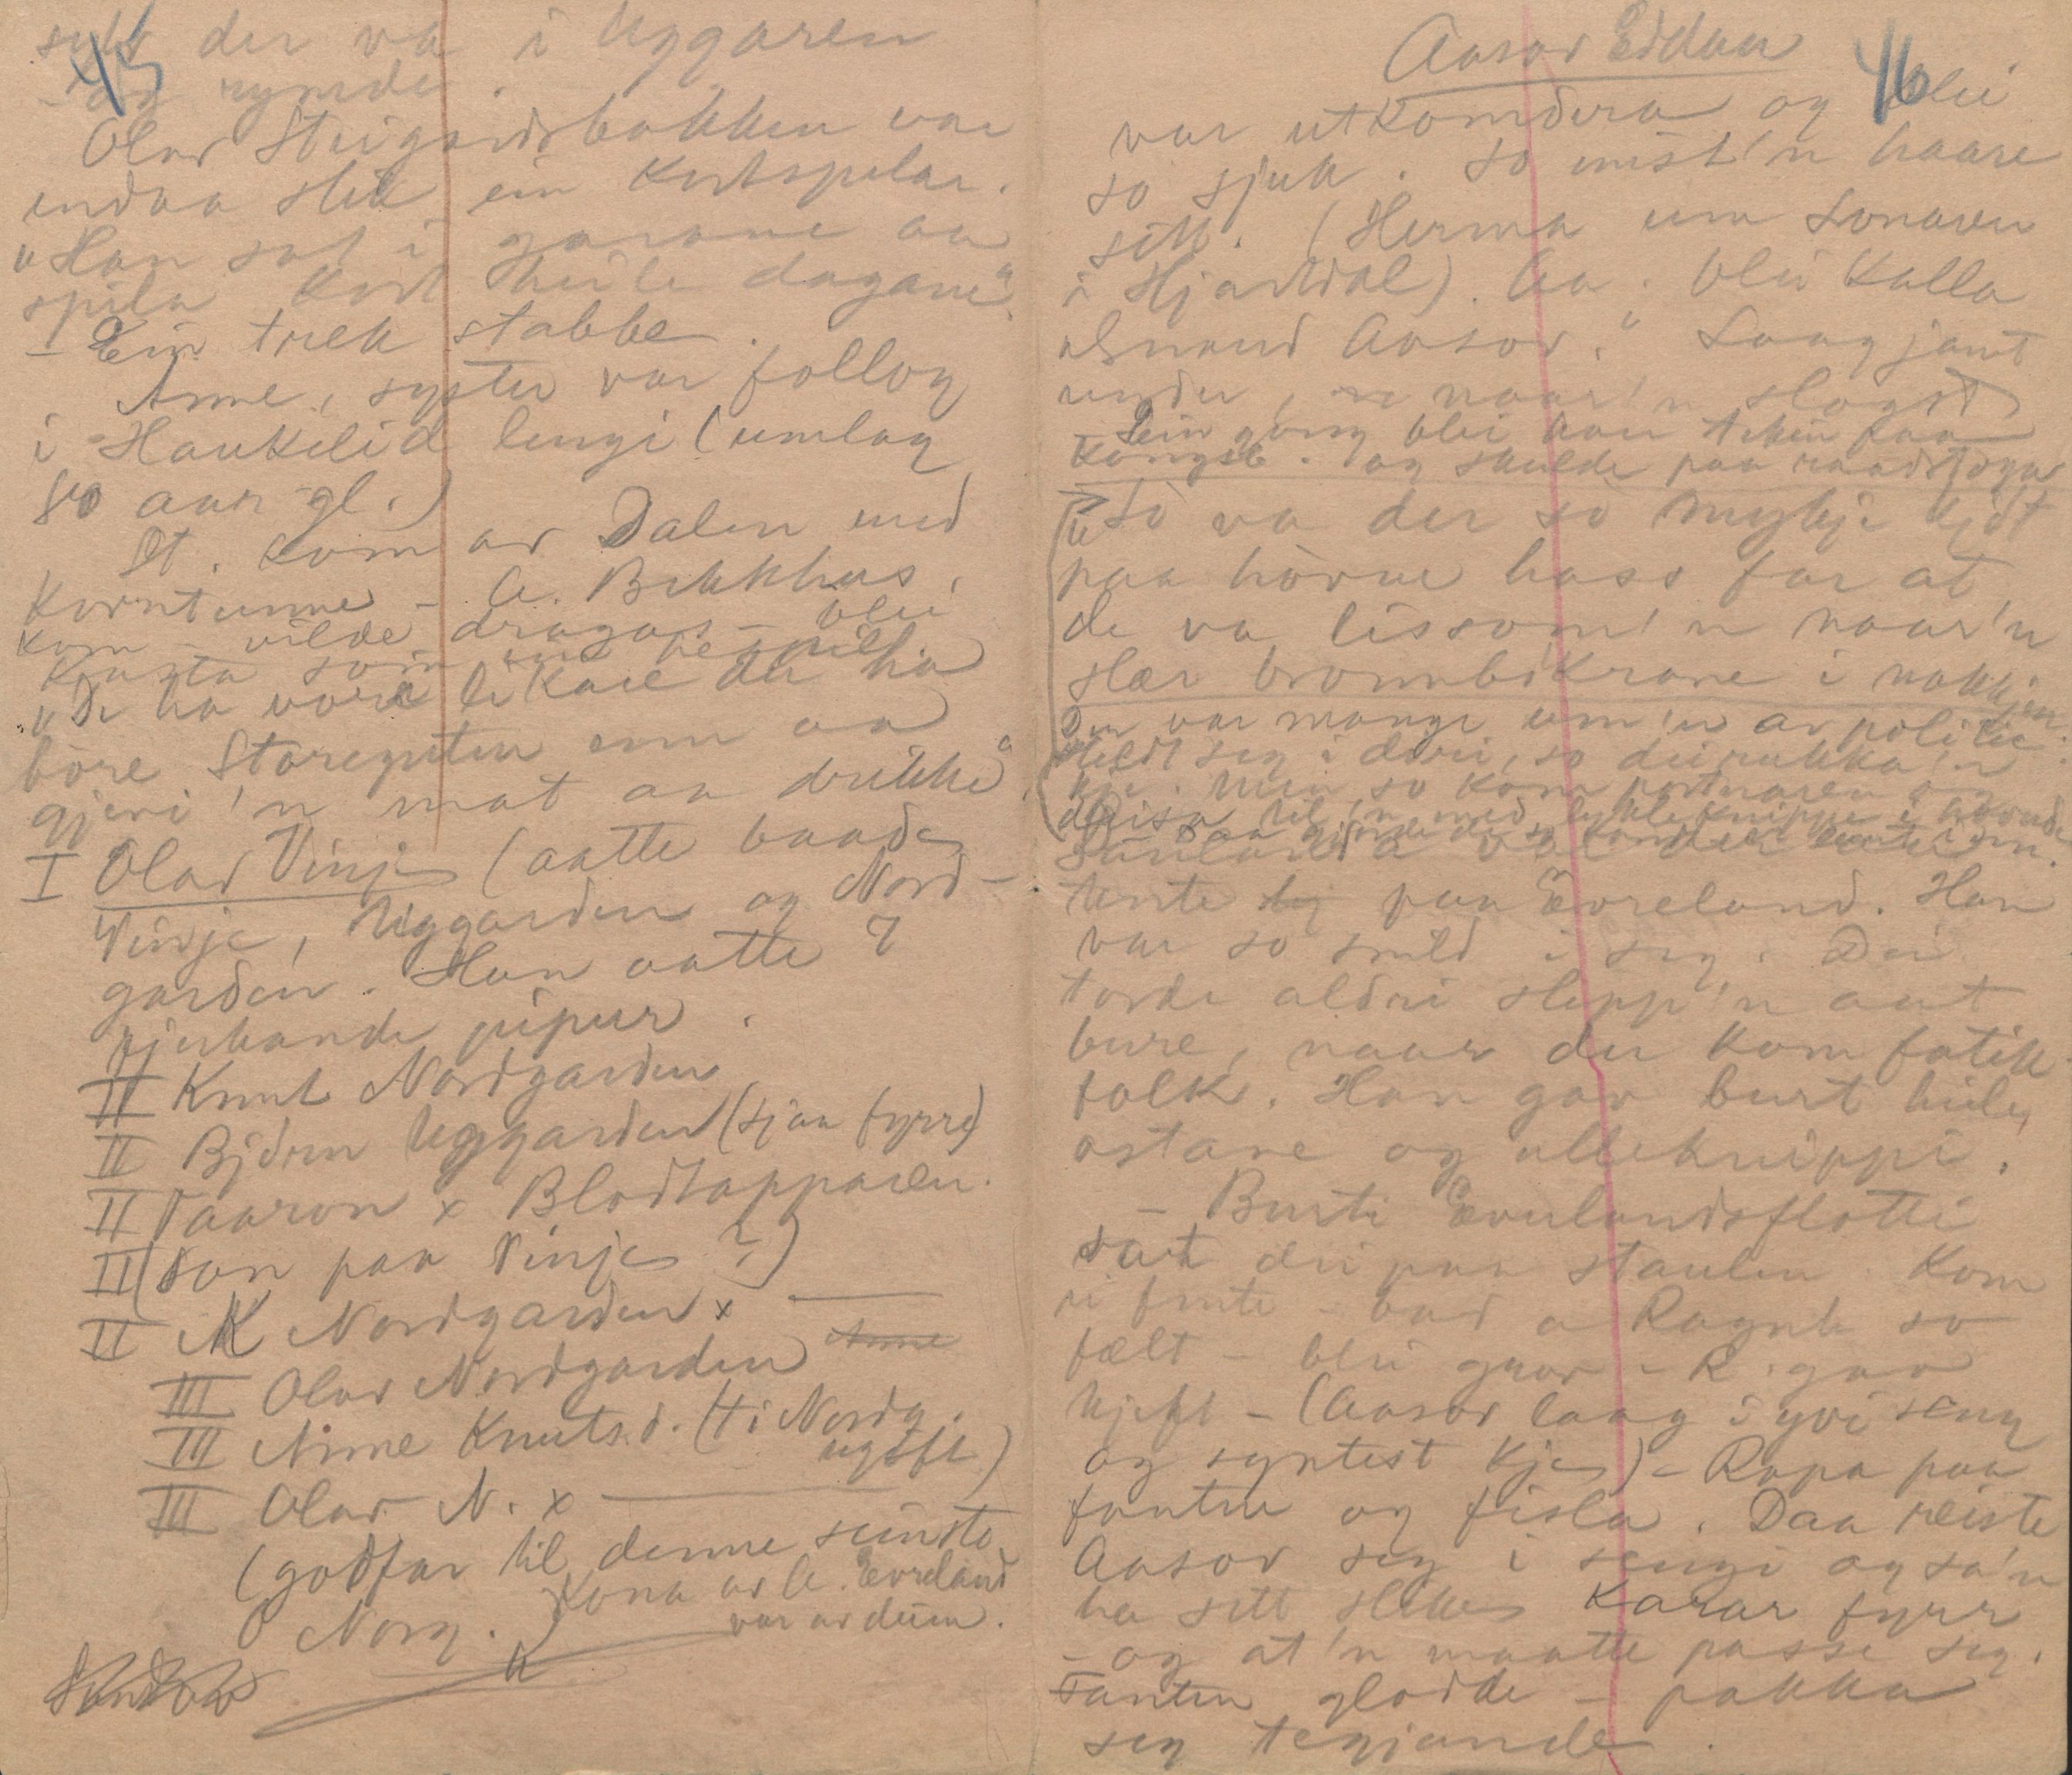 45
der va i Uggaren
og rymde.
Olav Steigardsbakken var
endaa slik ein kortspelar.
"Han sat i garane aa
spila kort heile dagane"
- Ein trek stabbe.
Anne, syster var follog
i Haukelid lengi (umlag
80 aar gl.)
St. kom av Dalen med
korntunne - A. Bekkhus,
kom - vilde dragas - blei
kasta som
"De ha vore likare du ha
bore Stereguten enn aa
gjevi 'n mat aa drikke"
I Olav Vinje (aatte baade
Vinje, Uggarden og Nord-
garden. Han aatte 7
rjukande pipur.
II Knut Nordgarden
II Bjørn Uggarden (sjaa fyrre)
II Taaron x Blodtapparen.
II (Son paa Vinje ?)
II K Nordgarden x
III Olav Nordgarden
III Anne Knutsd. (i Nordg.
ugift)
III Olav N. x
(godfar til denne siste
O Norg.) Kona av A. Evreland
var av deim.
46
Aasov Eidaa
var utkomdera og blei
so sjuk. So mist'n haare
sitt. (Herma um Sonaren
i Hjartdal). Aa. blei kalla
"Snaud Aasov." Laag jamt
under, naar'n slogst
- Ein gong blei han tekin paa
Kongsb. og skulde paa raadstoga
"So va der so mykje kjøt
paa hórne hass for at
de va lissom'n naar'n
slær brennbikrane i nakkjen.
Der var mange um'n av politie
heldt seg i døri, so dei rukka'n
kje. Men so kom portnaren og
daisa til 'n med lykleknippe i
Sunlanda
Ente paa Evreland. Han
var so snild i seg. Dei
torde aldri slepp'n aat
bure, naar der kom fatik
folk. Han gav burt heile
ostane og ulleknippi.
- Burti Evrelandsflotti
sat dei paa staulen. Kom
ei fente - bad a Ragnh so
fælt - blei grov - R. gav
kjeft - (Aasov laag i yvi seng
og syntest kje) - Ropa paa
fanten og fisla. Daa reiste
Aasov seg i sengi og sa'n
ha sett slike karar fyrr
- og at'n maatte passe seg.
Fanten glodde - pakka
seg tegjande.